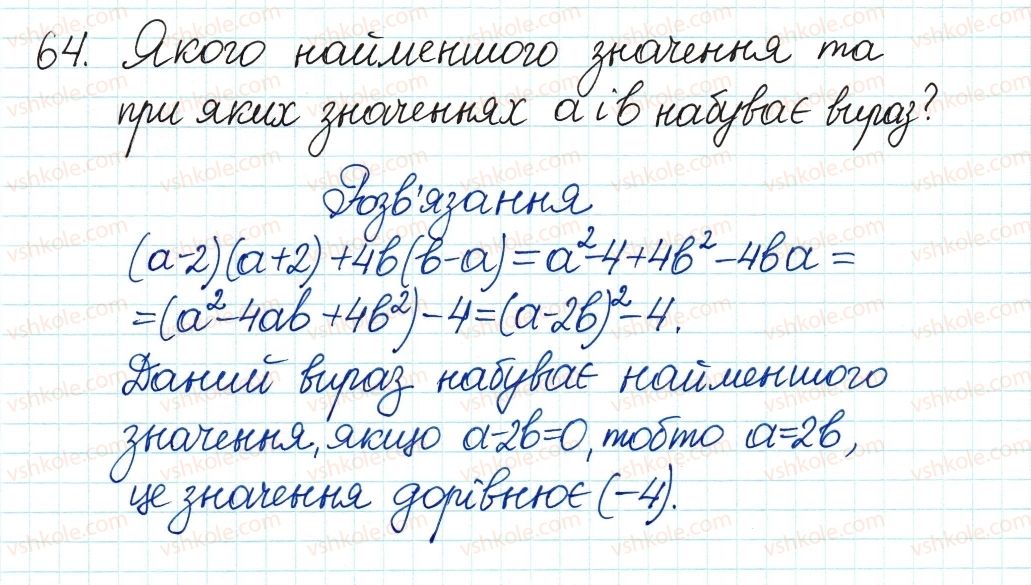 64. Якого найменшого значення та
при яких значеннях а і в набуває вираз?
Розв'язання
(а-2)(а+2)+4в(в-а)=а²-4+4в²-4ва=
=(а²-4ав+4в²)-4=(а-2в)²-4.
Даний вираз набуває найменшого
значення, якщо а-2в=0, тобто а=2в,
це значення дорівнює (-4).